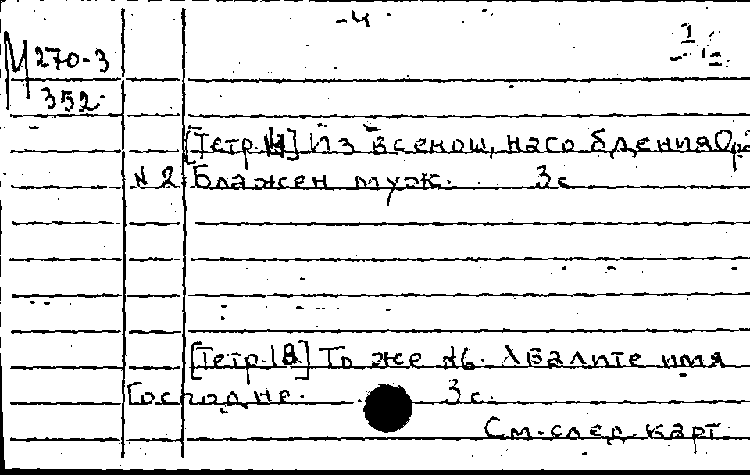 -4-
М 270-3
352
[Тетр. 11] Из всенощ, насо бдения Ор
№ 2. Блажен муж. 3 с
[Тетр. 12] То же №6. Хвалите имя
Господне. 3 с.
См. след. карт.